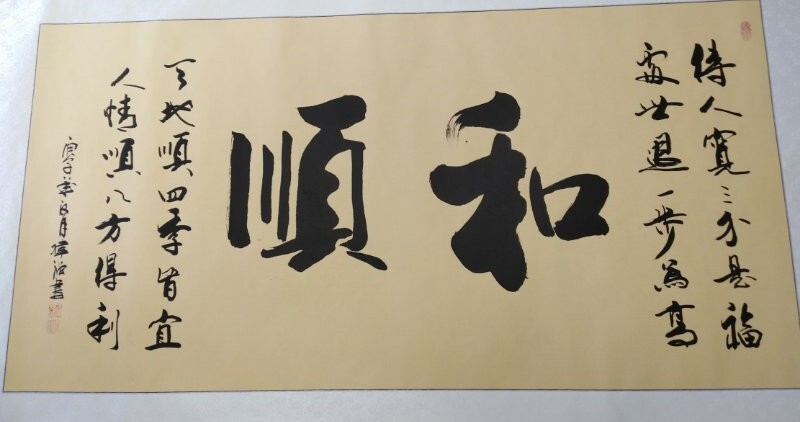 待人寬三分是福
處世退一步為高
和順
天地順四季皆宜
人情順八方得利
庚子年
書